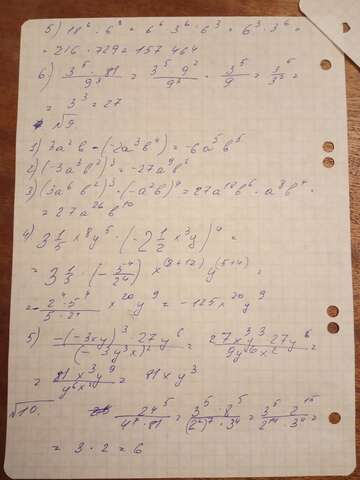 5) 18⁶ : 6³ = 6⁶ · 3⁶ : 6³ = 6³ · 3⁶ =
= 216 · 729 = 157 464
6) 3⁵ · 81 / 9³ = 3⁵ · 9² / 9³ = 3⁵ / 9 = 3⁵ / 3² =
= 3³ = 27
√9
1) 3a²b · (-2a³b⁴) = -6a⁵b⁵
2) (-3a³b²)³ = -27a⁹b⁶
3) (3a⁶b²)³ · (-a²b)⁴ = 27a¹⁸b⁶ · a⁸b⁴ =
= 27a²⁶b¹⁰
4) 3 1/5 x⁸y⁵ · (-2 1/2 x³y)⁴ =
= 3 1/5 · (- 5⁴/2⁴) x⁽⁸⁺¹²⁾ y⁽⁵⁺⁴⁾ =
= - 2⁴ · 5⁴ / 5 · 2⁴ x²⁰y⁹ = -125x²⁰y⁹
5) -(-3xy)³ · 27y⁶ / (-3y³x)² = 27x³y³ · 27y⁶ / 9y⁶x² =
= 81x³y⁹ / y⁶x² = 81xy³
√10.
24⁵ / 4⁷ · 81 = 3⁵ · 8⁵ / (2²)⁷ · 3⁴ = 3⁵ · 2¹⁵ / 2¹⁴ · 3⁴ =
= 3 · 2 = 6